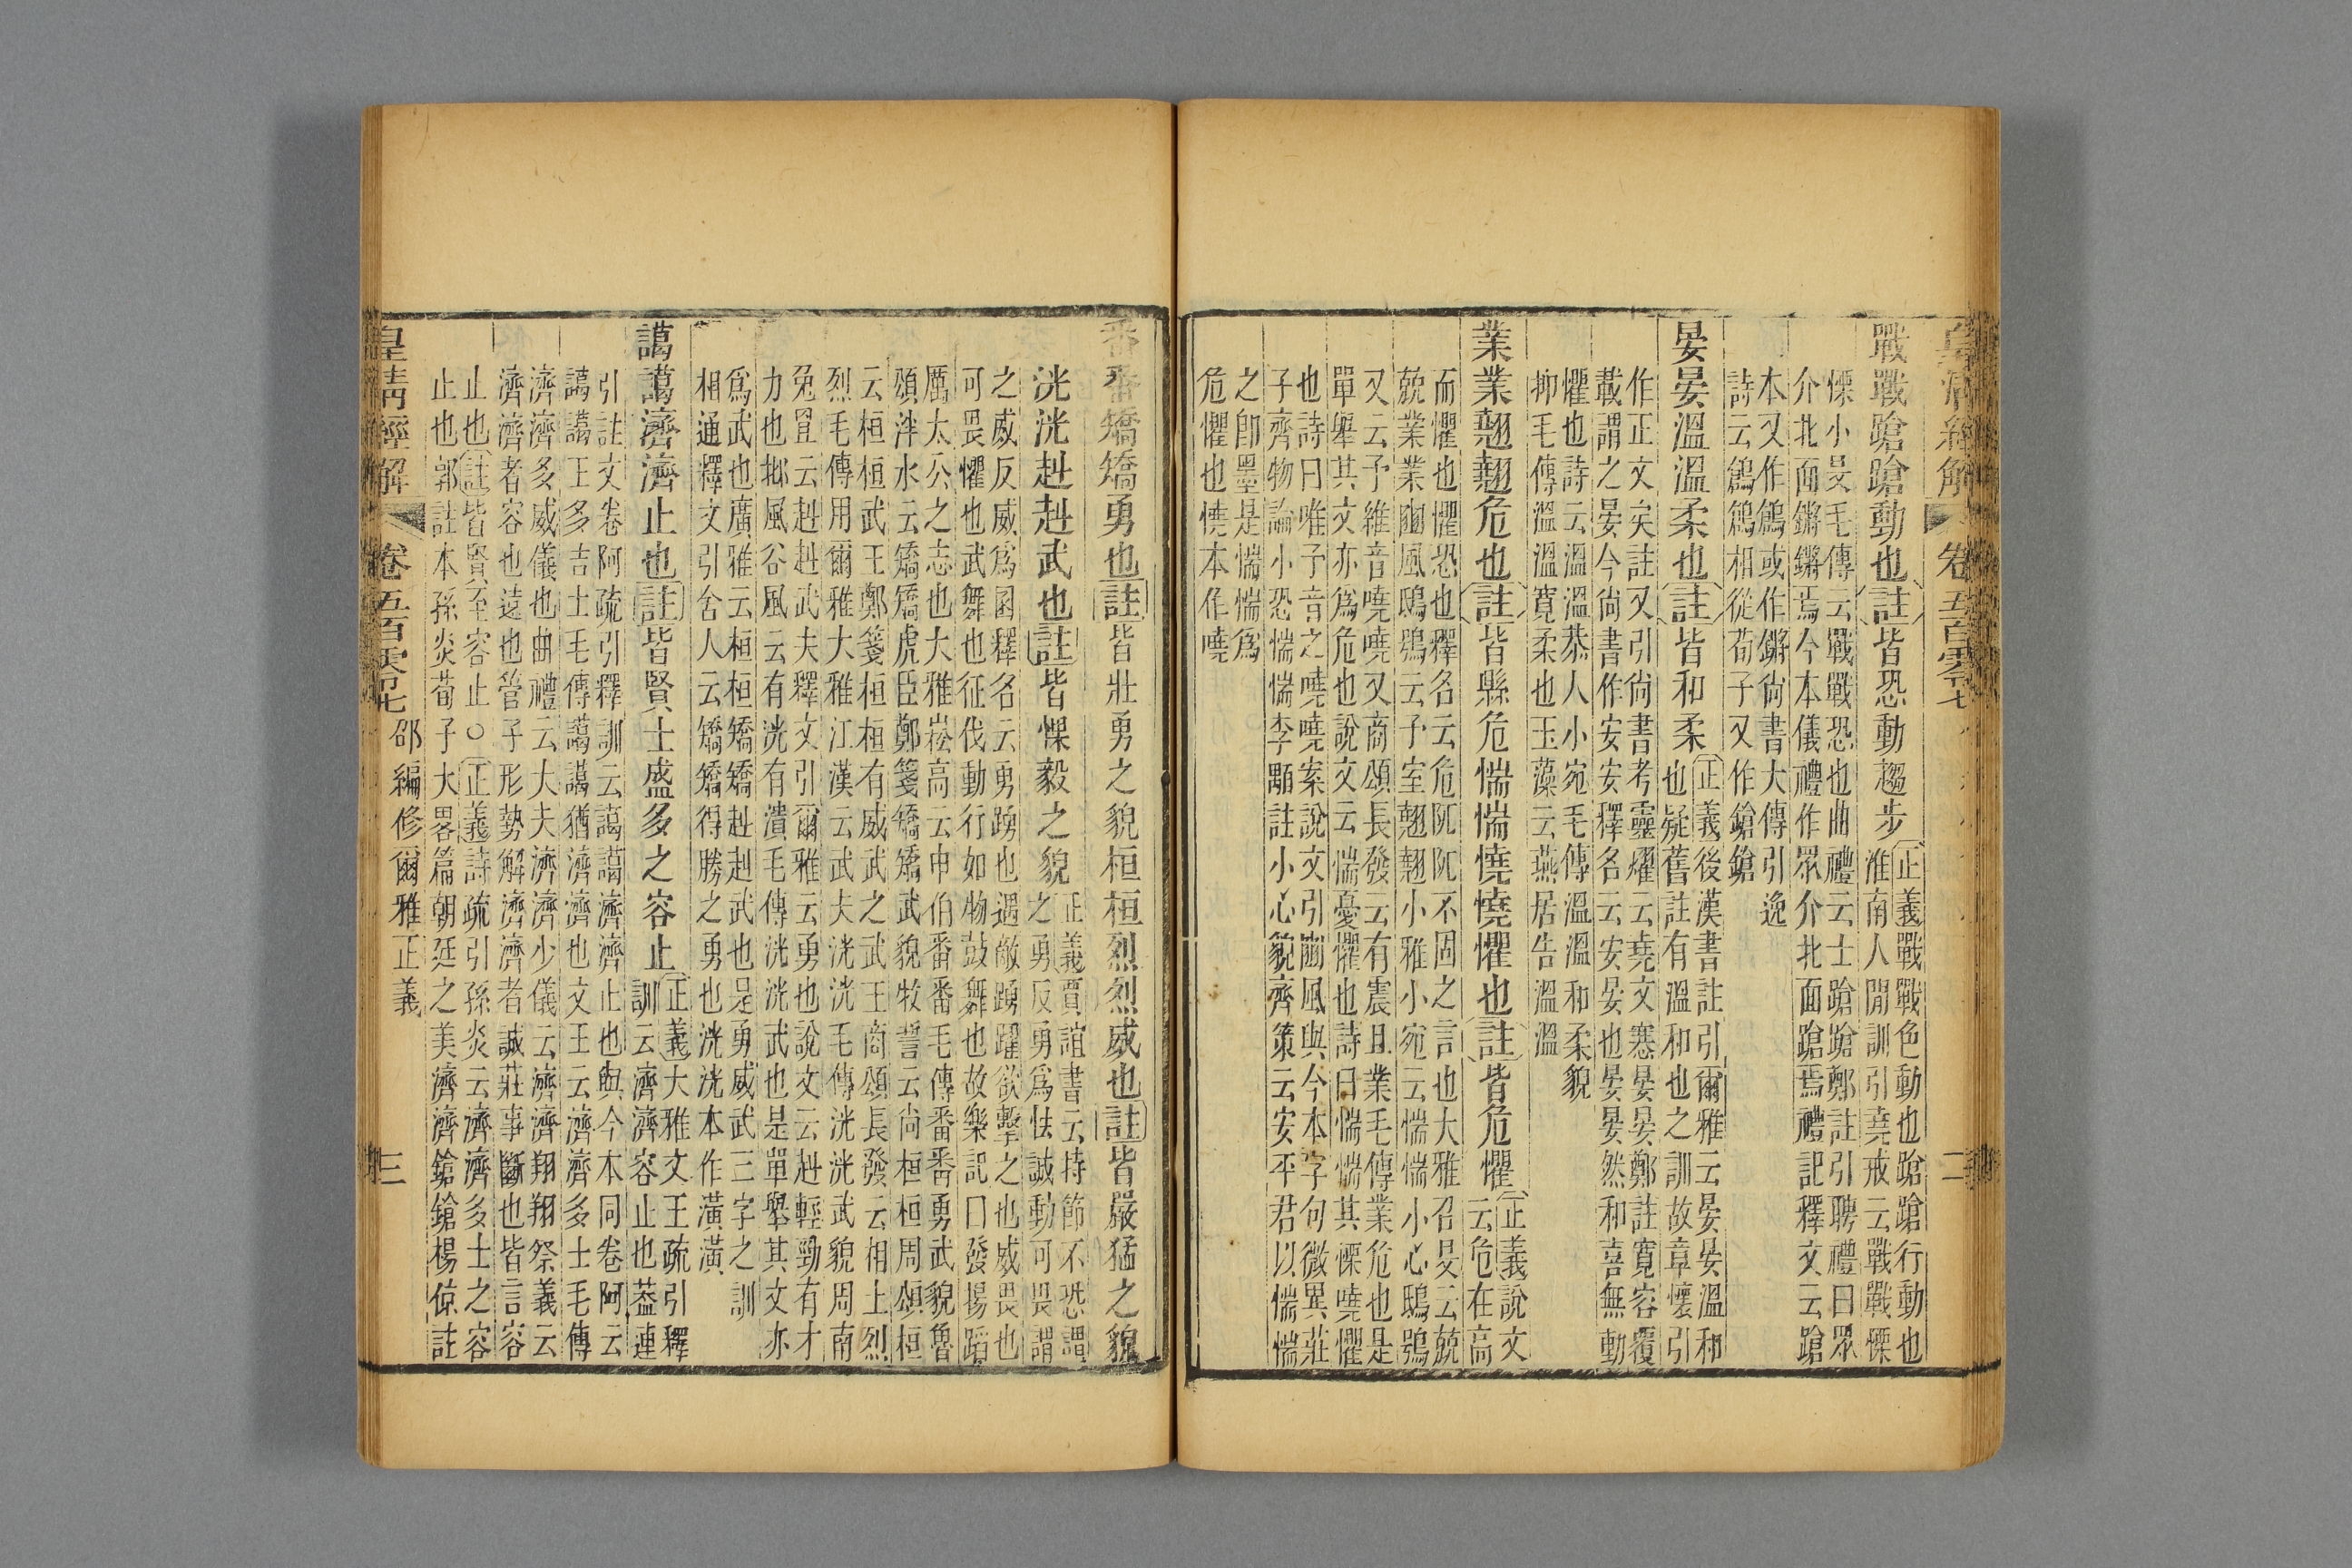 皇清經解
卷五百零七
二
戰戰蹌蹌動也註皆恐動趨步
正義戰戰色動也蹌蹌行動也
淮南人閒訓引堯戒云戰戰慄
慄小旻毛傳云戰戰恐也曲禮云士蹌蹌鄭註引聘禮曰眾
介北面鏘鏘焉今本儀禮作眾介北面蹌焉禮記釋文云蹌
本又作鶬或作鏘尙書大傳引逸
詩云鶬鶬相從荀子又作鎗鎗
晏晏溫溫柔也註皆和柔
正義後漢書註引爾雅云晏晏溫和
也疑舊註有溫和也之訓故章懷引
作正文矣註又引尙書考靈燿云堯文塞晏晏鄭註寬容覆
載謂之晏今尙書作安安釋名云安晏也晏晏然和喜無動
懼也詩云溫溫恭人小宛毛傳溫溫和柔貌
抑毛傳溫溫寬柔也玉藻云燕居告溫溫
業業翹翹危也註皆縣危惴惴憢憢懼也註皆危懼
正義說文
云危在高
而懼也懼恐也釋名云危阢阢不固之言也大雅召旻云兢
兢業業豳風鴟鴞云予室翹翹小雅小宛云惴惴小心鴟鴞
又云予維音嘵嘵又商頌長發云有震且業毛傳業危也是
單舉其文亦爲危也說文云惴憂懼也詩曰惴惴其慄嘵懼
也詩曰唯予音之嘵嘵案說文引豳風與今本字句微異莊
子齊物論小恐惴惴李頤註小心貌齊策云安平君以惴惴
之卽墨是惴惴爲
危懼也憢本作嘵
番番矯矯勇也註皆壯勇之貌桓桓烈烈威也註皆嚴猛之貌
洸洸赳赳武也註皆惈毅之貌
正義賈誼書云持節不恐謂
之勇反勇爲怯誠動可畏謂
之威反威爲圂釋名云勇踴也遇敵踴躍欲擊之也威畏也
可畏懼也武舞也征伐動行如物鼓舞也故樂記曰發揚蹈
厲太公之志也大雅崧高云申伯番番毛傳番番勇武貌魯
頌泮水云矯矯虎臣鄭箋矯矯武貌牧誓云尙桓桓周頌桓
云桓桓武王鄭箋桓桓有威武之武王商頌長發云相土烈
烈毛傳用爾雅大雅江漢云武夫洸洸毛傳洸洸武貌周南
兔罝云赳赳武夫釋文引爾雅云勇也說文云赳輕勁有才
力也邶風谷風云有洸有潰毛傳洸洸武也是單舉其文亦
爲武也廣雅云桓桓矯矯赳赳武也是勇威武三字之訓
相通釋文引舍人云矯矯得勝之勇也洸洸本作潢潢
藹藹濟濟止也註皆賢士盛多之容止
正義大雅文王疏引釋
訓云濟濟容止也葢連
引註文卷阿疏引釋訓云藹藹濟濟止也與今本同卷阿云
藹藹王多吉士毛傳藹藹猶濟濟也文王云濟濟多士毛傳
濟濟多威儀也曲禮云大夫濟濟少儀云濟濟翔翔祭義云
濟濟者容也遠也管子形勢解濟濟者誠莊事斷也皆言容
止也○註皆賢至容止○正義詩疏引孫炎云濟濟多士之容
止也郭註本孫炎荀子大畧篇朝廷之美濟濟鎗鎗楊倞註
皇清經解
卷五百零七
邵編修爾雅正義
三